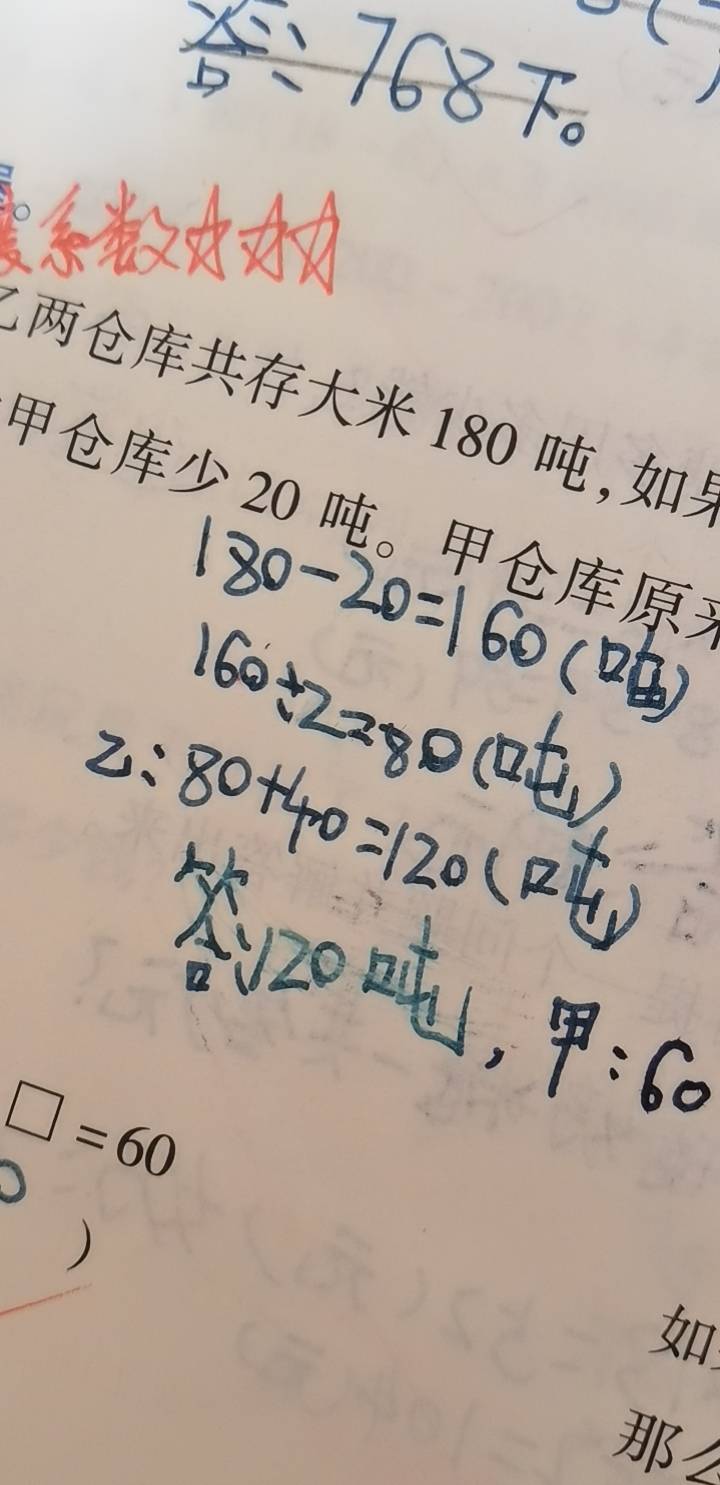 答：768下。
系数☆☆☆
乙两仓库共存大米 180 吨，如果
甲仓库少 20 吨。甲仓库原来
180-20=160(吨)
160÷2=80(吨)
乙：80+40=120(吨)
答：120吨，甲：60
□=60
)
如
那么